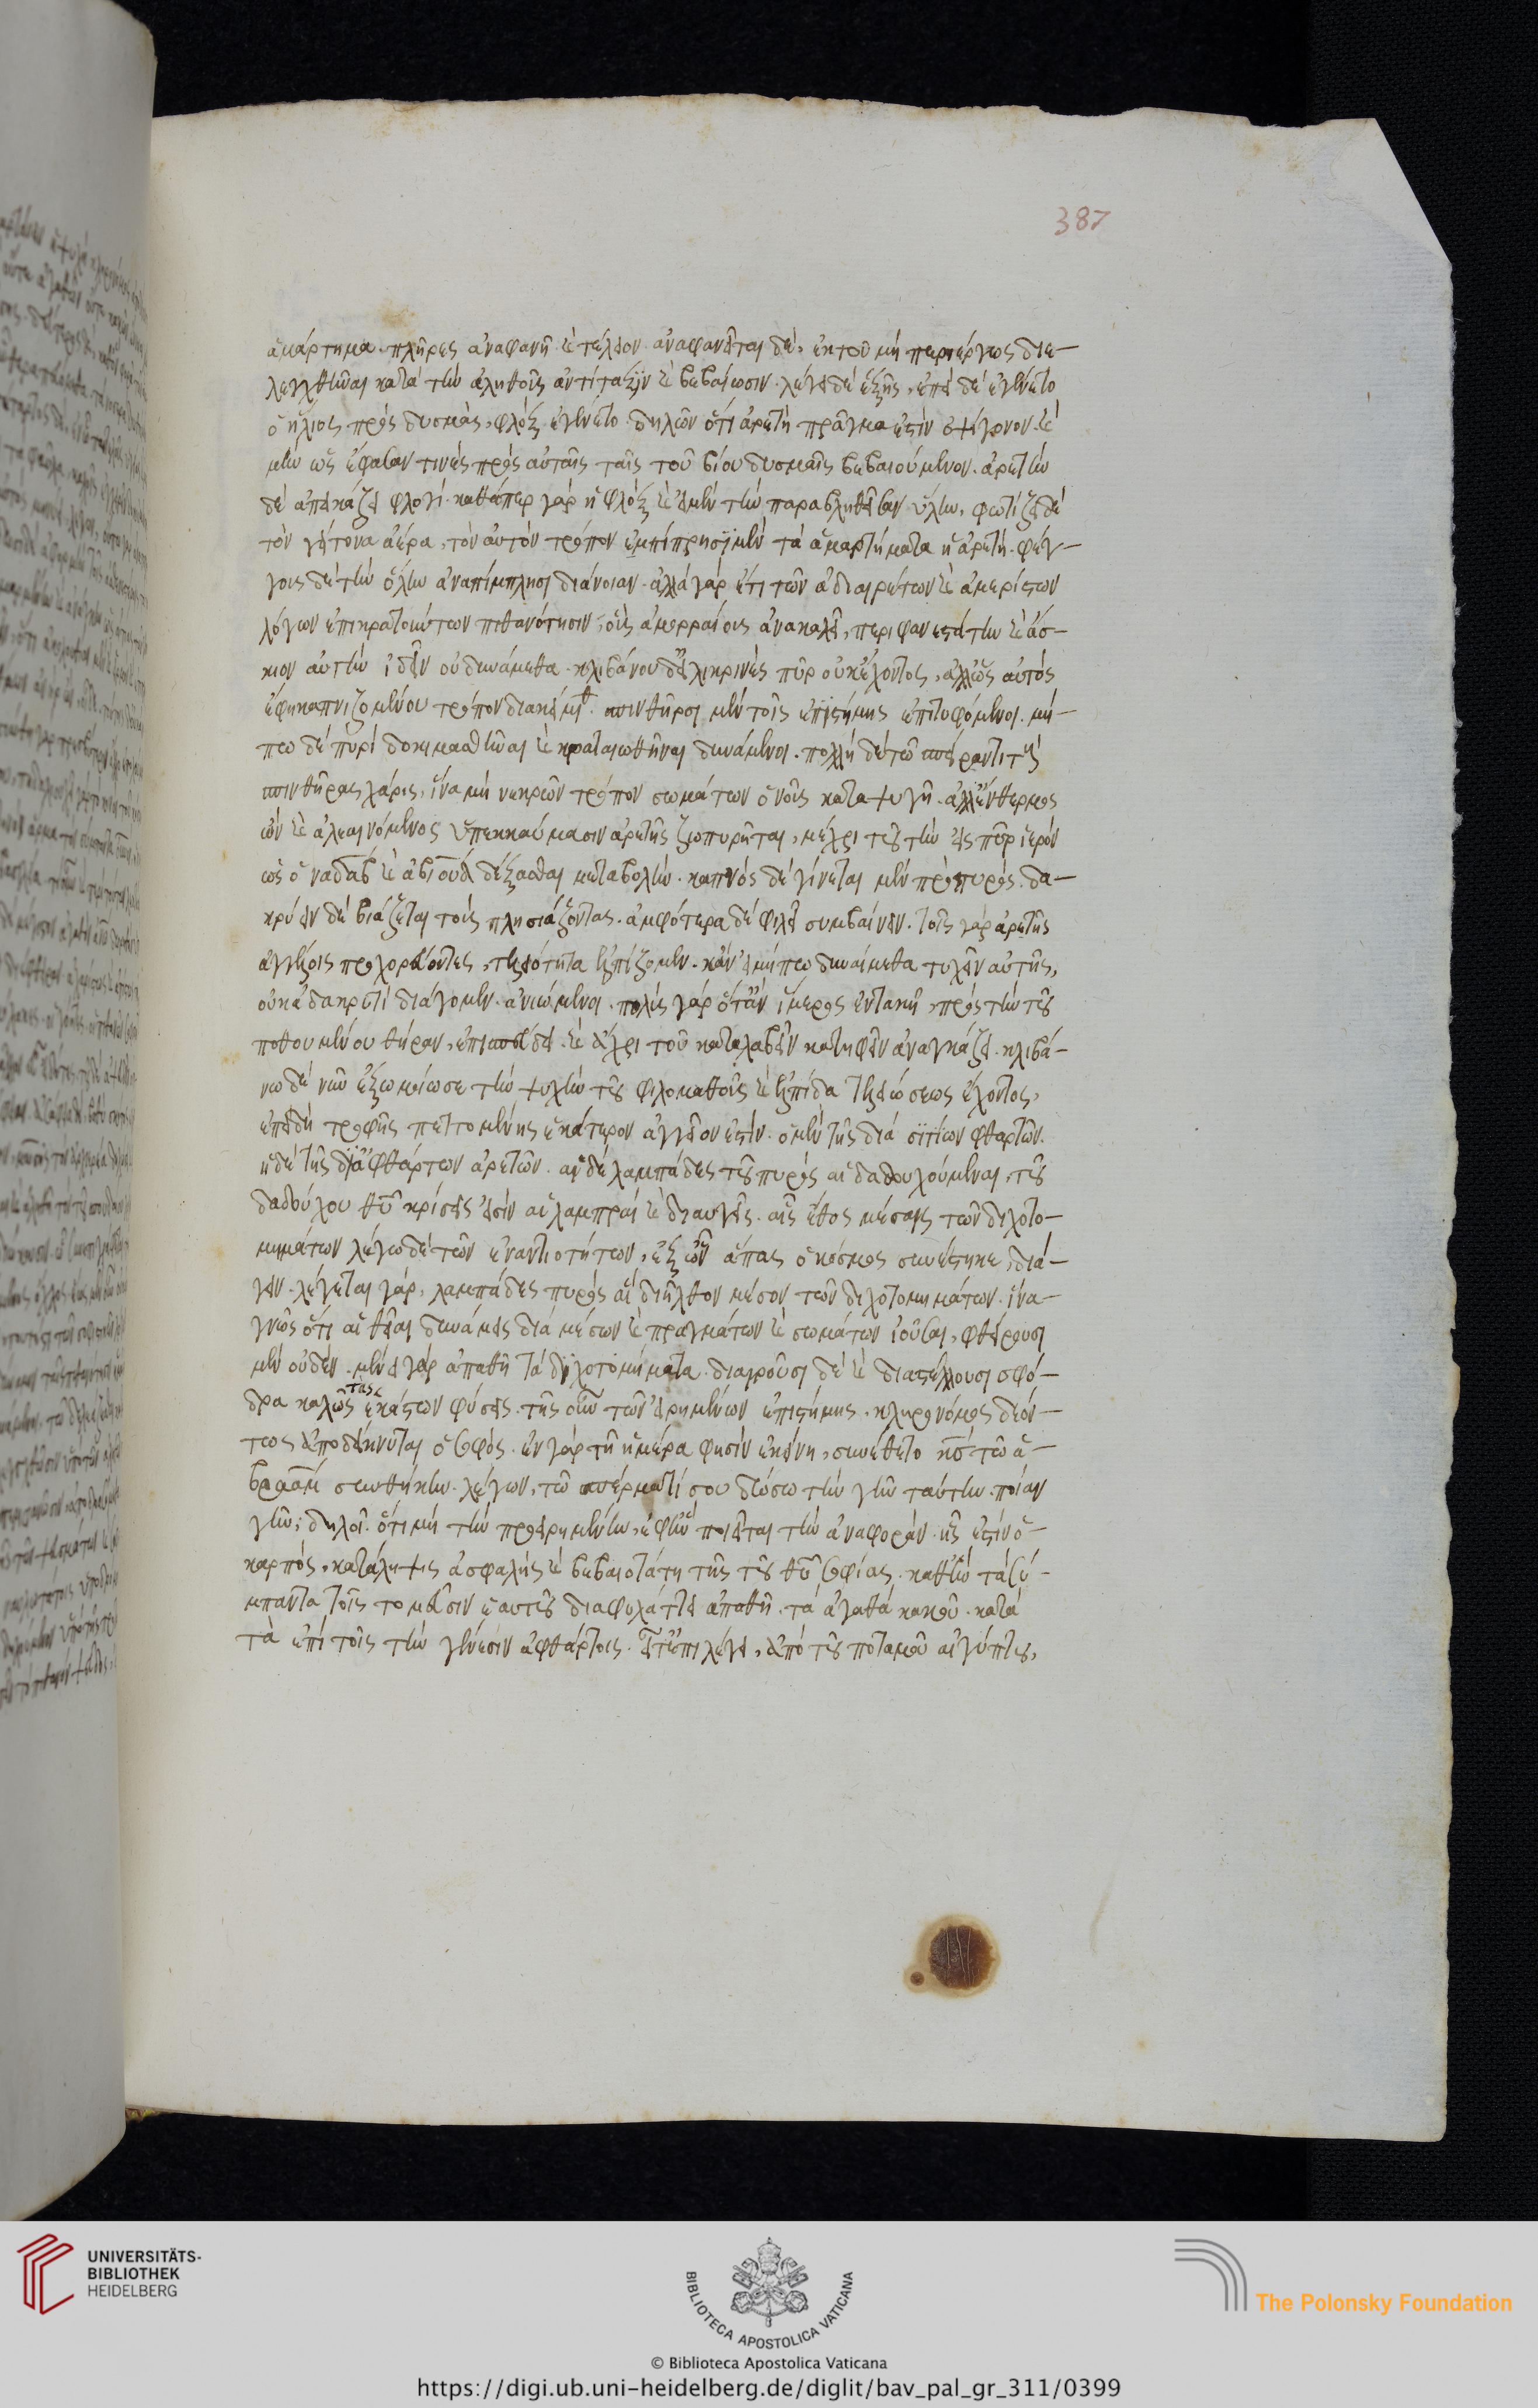 387
ἁμάρτημα πλῆρες ἀναφανῆ καὶ τέλειον. ἀναφανεῖται δὲ, ἐκ τοῦ μὴ περιέργως διε-
λεγχθῆναι κατὰ τὴν ἀληθοῦς ἀντίταξιν καὶ βεβαίωσιν. λέγει δὲ ἑξῆς, ἐπεὶ δὲ ἐγένετο
ὁ ἥλιος πρὸς δυσμὰς, φλὸξ ἐγένετο. δηλῶν ὅτι ἀρετὴ πρᾶγμα ἐστὶν ὀψίγονον. καὶ
μὲν ὡς ἔφασαν τινὲς πρὸς αὐταῖς ταῖς τοῦ βίου δυσμαῖς βεβαιούμενον. ἀρετὴν
δὲ ἀπεικάζει φλογί. καθάπερ γὰρ ἡ φλὸξ καίει μὲν τὴν παραβληθεῖσαν ὕλην, φωτίζει δὲ
τὸν γείτονα ἀέρα, τὸν αὐτὸν τρόπον ἐμπίπρησι μὲν τὰ ἁμαρτήματα ἡ ἀρετὴ. φέγ-
γους δὲ τὴν ὅλην ἀναπίμπλησι διάνοιαν. ἀλλὰ γὰρ ἔτι τῶν ἀδιαιρέτων καὶ ἀμερίστων
λόγων ἐπικρατούντων πιθανότησιν, οὓς ἀμορραίους ἀνακαλεῖ, περιφανεστάτην καὶ ἄσ-
κιον αὐτὴν ἰδεῖν οὐ δυνάμεθα. κλιβάνου δ' εἰλικρινὲς πῦρ οὐκ ἔχοντος, ἀλλ' ὡς αὐτὸς
ἔφη καπνιζομένου τρόπον διακείμεθα. σπινθῆρσι μὲν τοῖς ἐπιστήμης ἐπιτυφόμενοι. μή-
πω δὲ πυρὶ δοκιμασθῆναι καὶ κραταιωθῆναι δυνάμενοι. πολλὴ δὲ τῷ σπείραντι τοὺς
σπινθῆρας χάρις, ἵνα μὴ νεκρῶν τρόπον σωμάτων ὁ νοῦς καταψυγῆ. ἀλλ' ἔνθερμος
ὢν καὶ ἀλεαινόμενος ὑπεκκαύμασιν ἀρετῆς ζωπυρῆται, μέχρι τοῦ τὴν εἰς πῦρ ἱερὸν
ὡς ὁ ναδαβ καὶ ἀβιουδ δέξασθαι μεταβολὴν. καπνὸς δὲ γίνεται μὲν πρὸ πυρὸς. δα-
κρύειν δὲ βιάζεται τοὺς πλησιάζοντας. ἀμφότερα δὲ φιλεῖ συμβαίνειν. τοῖς γὰρ ἀρετῆς
ἀγγέλοις προχορεύοντες, τελειότητα ἐλπίζομεν. κἂν εἰ μήπω δυναίμεθα τυχεῖν αὐτῆς,
οὐκ ἀδακρυτὶ διάγομεν. ἀνιώμενοι. πολὺς γὰρ ὅταν ἵμερος ἐντακῆ, πρὸς τὴν τοῦ
ποθουμένου θήραν, ἐπισπεύδει. καὶ ἄχρι τοῦ καταλαβεῖν κατηφεῖν ἀναγκάζει. κλιβά-
νῳ δὲ νῦν ἐξωμοίωσε τὴν ψυχὴν τοῦ φιλομαθοῦς καὶ ἐλπίδα τελειώσεως ἔχοντος,
ἐπειδὴ τροφῆς πεττομένης ἑκάτερον ἀγγεῖον ἐστὶν. ὁ μὲν τῆς διὰ σιτίων φθαρτῶν.
ἡ δὲ τῆς δι' ἀφθάρτων ἀρετῶν. αἱ δὲ λαμπάδες τοῦ πυρὸς αἱ δᾳδουχούμεναι, τοῦ
δᾳδούχου θεοῦ κρίσεις εἰσὶν αἱ λαμπραὶ καὶ διαυγεῖς. αἷς ἔθος μέσαις τῶν διχοτο-
μημάτων λέγω δὲ τῶν ἐναντιοτήτων, ἐξ ὧν ἅπας ὁ κόσμος συνέστηκε, διά-
γειν. λέγεται γὰρ, λαμπάδες πυρὸς αἳ διῆλθον μέσον τῶν διχοτομημάτων. ἵνα
γνῷς ὅτι αἱ θεῖαι δυνάμεις διὰ μέσων καὶ πραγμάτων καὶ σωμάτων ἰοῦσαι, φθείρουσι
μὲν οὐδὲν. μένει γὰρ ἀπαθῆ τὰ διχοτομήματα. διαιροῦσι δὲ καὶ διαστέλλουσι σφό-
δρα καλῶς τὰς ἑκάστων φύσεις. τῆς οὖν τῶν εἰρημένων ἐπιστήμης, κληρονόμος δεόν-
τως ἀποδείκνυται ὁ σοφός. ἐν γὰρ τῇ ἡμέρᾳ φησὶν ἐκείνῃ, συνέθετο κς τῷ ἁ-
βραὰμ συνθήκην λέγων, τῷ σπέρματί σου δώσω τὴν γῆν ταύτην. ποίαν
γῆν, δηλοῖ. ὅτι μὴ τὴν προειρημένην, ἐφ' ἣν ποιεῖται τὴν ἀναφορὰν. ἧς ἐστὶν ὁ
καρπὸς, κατάληψις ἀσφαλὴς καὶ βεβαιοτάτη τῆς τοῦ θεοῦ σοφίας. καθ' ἣν τὰ σύ-
μπαντα τοῖς τομεῦσιν ἑαυτοῦ διαφυλάττει ἀπαθῆ. τὰ ἀγαθὰ κακοῦ. κατὰ
τὰ ἐπὶ τοῖς τὴν γένεσιν ἀφθάρτοις. εἶτ' ἐπιλέγει, ἀπὸ τοῦ ποταμοῦ αἰγύπτου,
UNIVERSITÄTS-
BIBLIOTHEK
HEIDELBERG
BIBLIOTECA APOSTOLICA VATICANA
The Polonsky Foundation
© Biblioteca Apostolica Vaticana
https://digi.ub.uni-heidelberg.de/diglit/bav_pal_gr_311/0399